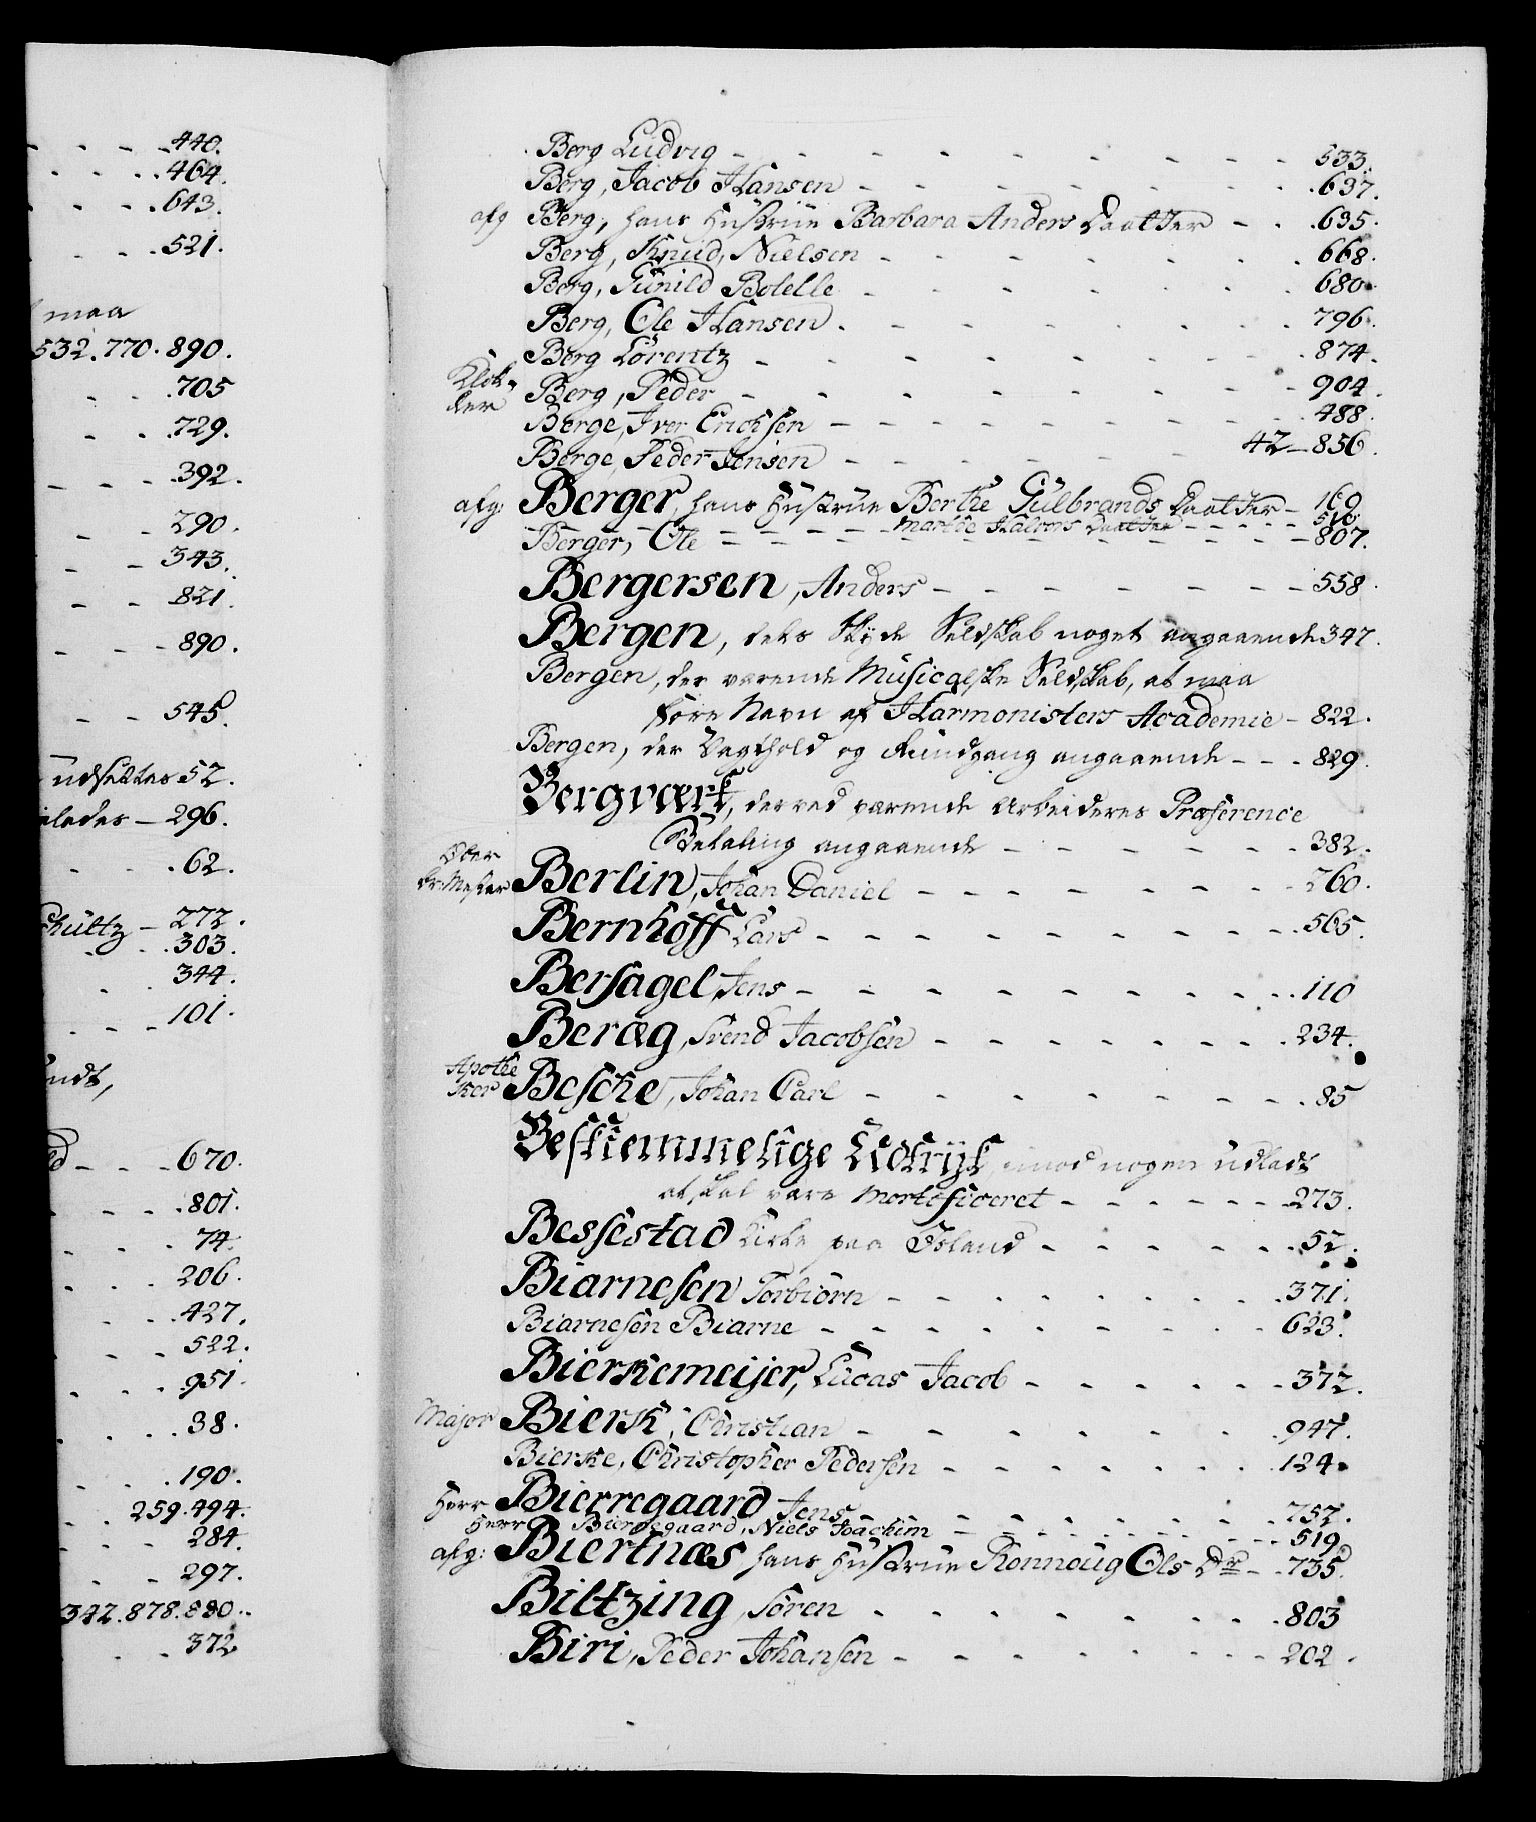 440.
464.
643.
521.
maa
532. 770. 890.
705
729.
392.
290.
343.
821.
890.
545.
udsættes 52.
296.
62.
272.
303.
344.
101.
670.
801.
74.
206.
427.
522.
951.
38.
190.
259. 494.
284.
297.
342. 878. 880.
372
Berg Ludvig - 533.
Berg, Jacob Hansen - 637.
afg Berg, hans Hustrue Barbara Anders Daatter - 635.
Berg, Knud Nielsen - 668.
Berg, Gunild Bolelle - 680.
Berg, Ole Hansen - 796.
Berg Lorentz - 874.
Klok-
ker Berg, Peder - 904.
Berge, Iver Erichsen - 488.
Berge, Peder Jensen - 42 - 856.
afg: Berger, hans Hustrue Berthe Gulbrands Daatter - 169
Marthe Halvors Daatter - 516.
Berger, Ole - 807.
Bergersen, Anders - 558.
Bergen, dets Skyde Selskab noget angaaende 347.
Bergen, der værende Musicalske Selskab, at maa
føre Navn af Harmonisters Academie - 822.
Bergen, der Vagthold og Rundgang angaaende - 829.
Bergværk, der ved værende Arbeideres Præference
Betaling angaaende - 382.
Ober
Br: Mester Berlin, Johan Daniel - 260.
Bernhoff Lars - 565.
Bersagel, Jens - 110
Beræg, Svend Jacobsen - 234.
Apothe
ker Besche, Johan Carl - 85
Beskiemmelige Udtryk, imod nogen udladt
at skal være Mortificeret - 273.
Bessestad Kirke paa Island - 52.
Biarnesen Torbiørn - 371.
Biarnesen Biarne - 623.
Bierkemeijer, Lucas Jacob - 372.
Major Bierk, Christian - 947.
Bierke, Christopher Pedersen - 124.
Herr Bierregaard Jens - 757.
Herr Bierregaard, Niels Joachim - 519.
afg: Biertnæs hans Hustrue Ronnoug Ols Dr - 735.
Biltzing, Søren - 803
Biri, Peder Johansen - 202.